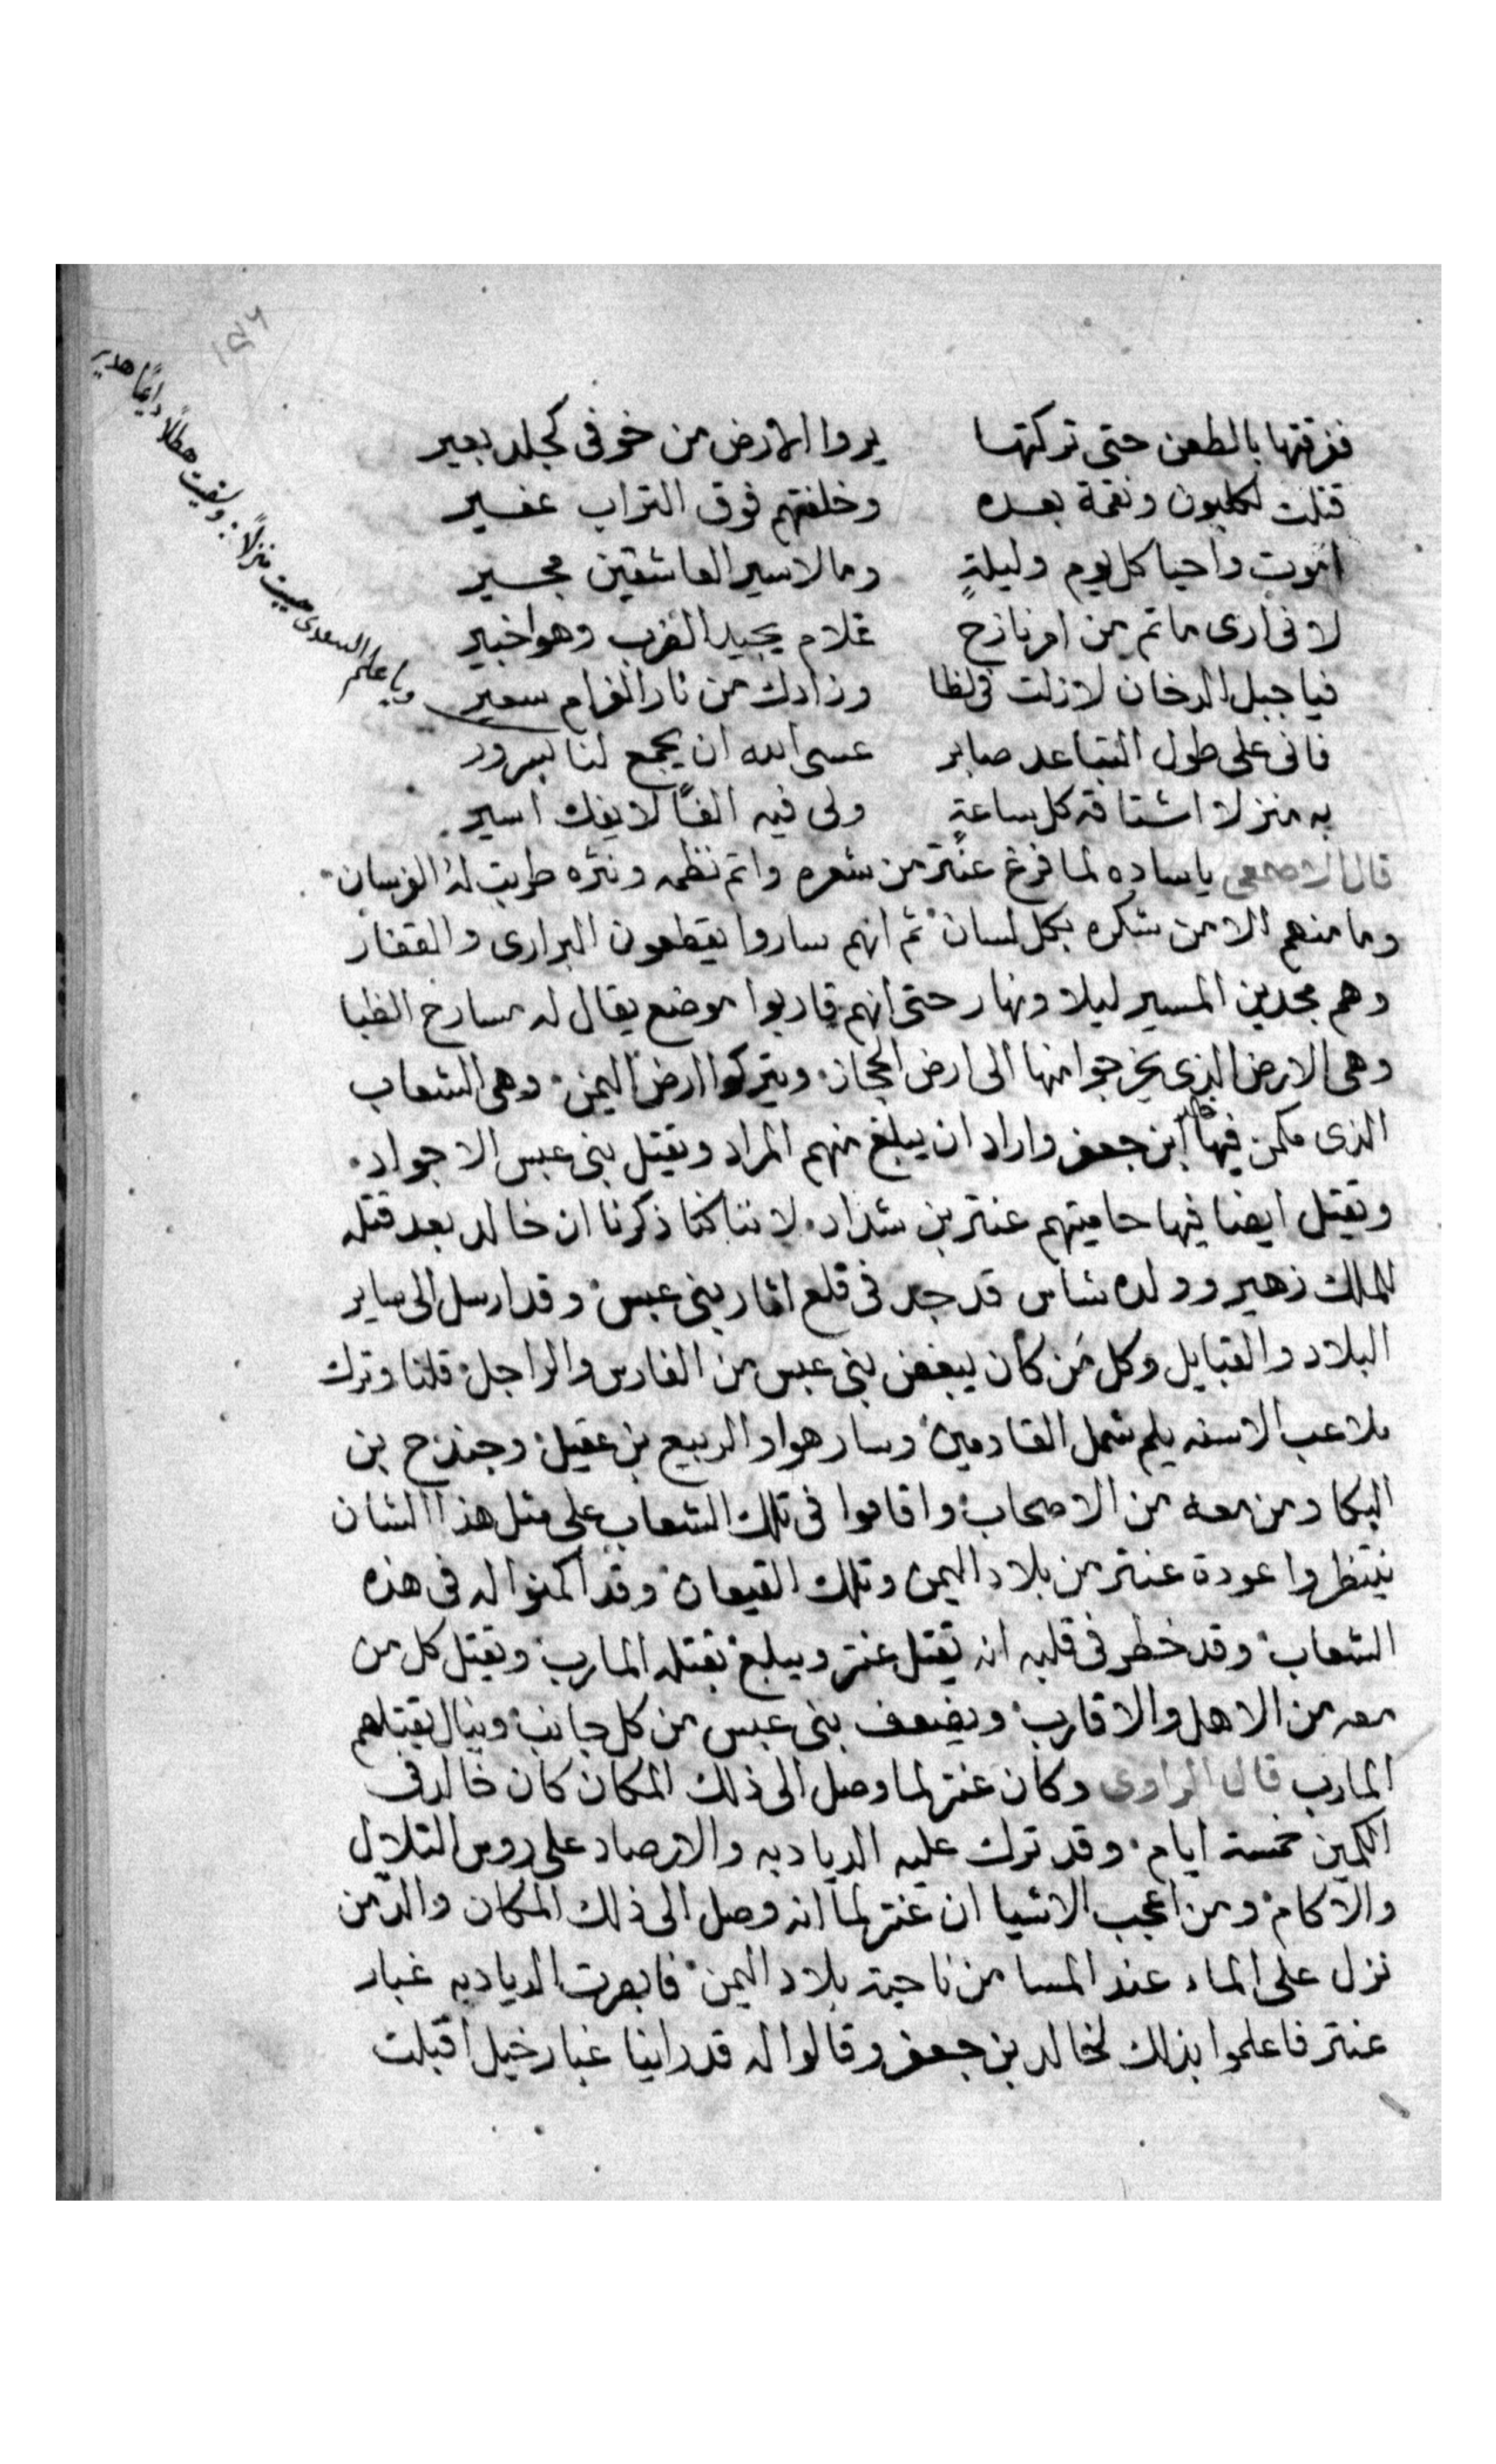 ففرقتها بالطعن حتى تركتها يروا الارض من خوفى كجلد بعير
قتلت لكلبون ونقمة بعده وخلفتهم فوق التراب عفير
اموت واحيا كل يوم وليلةٍ وما لاسير العاشقين مجير
لانى ارى ماتم من امر نازح غلام يجيد الضرب وهوا خبير
فيا جبل الدخان لازلت فى لظا وزادك من نار الغرام سعير
ويا علم السعدى حييت منزلاً . وسقيت هطلاً دايمًا هدير
فانى على طول التباعد صابر عسى الله ان يجمع لنا بسرور
به منزلا اشتاقه كل ساعةٍ ولى فيه الفًا لا يفك اسير
قال الاصمعى ياساده لما فرغ عنتر من شعره واتم نظمه ونثره طربت له الفرسان
وما منهم الا من شكره بكل لسان ثم انهم ساروا يقطعون البرارى والقفار
وهم مجدين المسير ليلا ونهار حتى انهم قاربوا موضع يقال له مسارح الظبا
وهى الارض الذى يخرجوا منها الى ارض الحجاز ويتركوا ارض اليمن وهى الشعاب
الذى مكمن فيها خالد ابن جعفر واراد ان يبلغ منهم المراد ويقتل بنى عبس الاجواد
ويقتل ايضا فيها حاميتهم عنتر بن شداد لاننا كنا ذكرنا ان خالد بعد قتله
للملك زهير وولده شاس قد جد فى قلع اثار بنى عبس وقد ارسل الى ساير
البلاد والقبايل وكل مَن كان يبغض بنى عبس من الفارس والراجل قلنا وترك
ملاعب الاسنه يلم شمل القادمين وسار هوا والربيع بن عقيل وجندح بن
البكا ومن معه من الاصحاب واقاموا فى تلك الشعاب على مثل هذا الشان
ينتظروا عودة عنتر من بلاد اليمن وتلك القيعان وقد اكمنوا له فى هذه
الشعاب وقد خطر فى قلبه انه يقتل عنتر ويبلغ بقتله المارب ويقتل كل من
معه من الاهل والاقارب ويضعف بنى عبس من كل جانب وينال بقتلهم
المارب قال الراوى وكان عنتر لما وصل الى ذلك المكان كان خالد فى
الكمين خمسة ايام وقد ترك عليه الديادبه والارصاد على روس التلال
والاكام ومن اعجب الاشيا ان عنتر لما انه وصل الى ذلك المكان والدمن
نزل على الماء عند المسا من ناحية بلاد اليمن فابصرت الديادبه غبار
عنتر فاعلموا بذلك لخالد بن جعفر وقالوا له قد راينا غبار خيل اقبلت